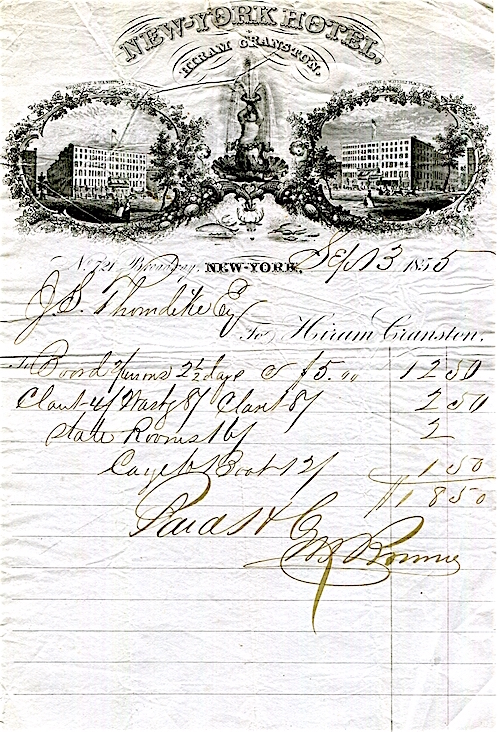 NEW-YORK HOTEL,
HIRAM CRANSTON.
No. 721 Broadway, NEW-YORK, Sep 13 1855
J. S. Thorndike Esq
To Hiram Cranston.
To Board 2 persons 2 1/2 days @ $5.00 12 50
Claret 4/ Wash'g 8/ Claret 8/ 2 50
State Rooms 16/ 2
Cage to Boat 12/ 1 50
$18 50
Paid